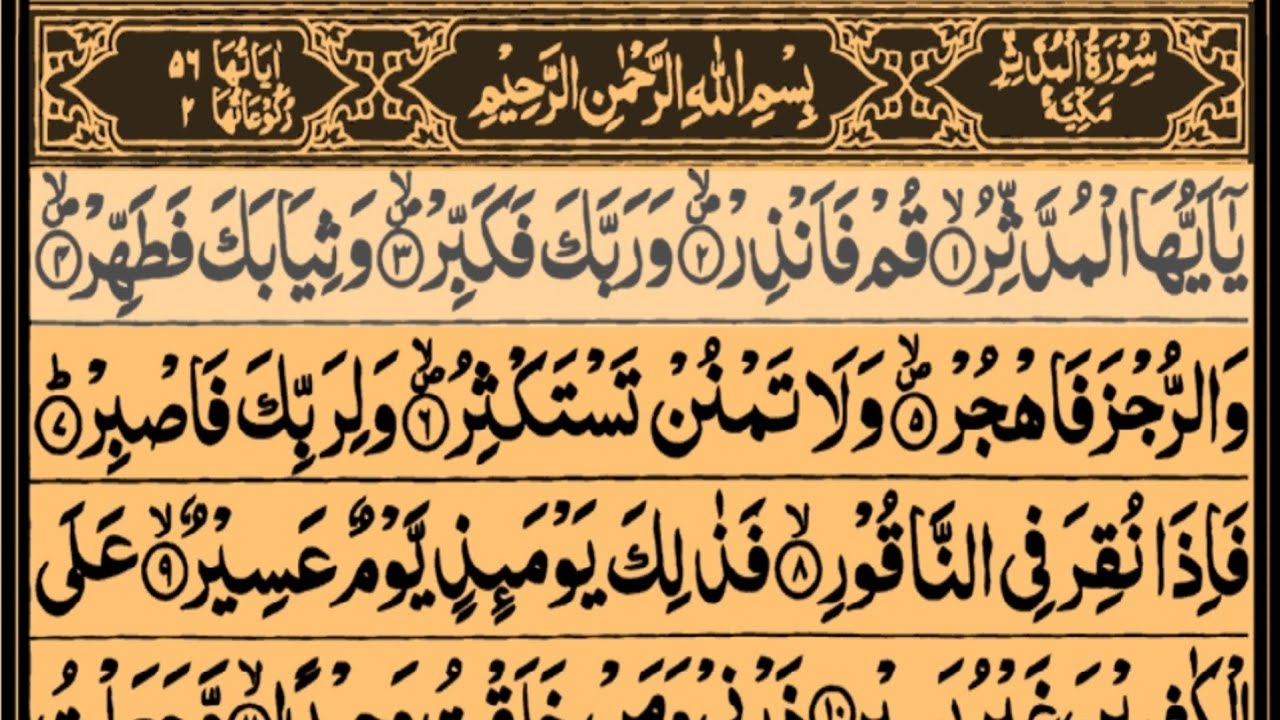 سُوْرَةُ الْمُدَّثِّرِ مَكِّيَّةٌ
بِسْمِ اللّٰهِ الرَّحْمٰنِ الرَّحِيْمِ
اٰيَاتُهَا ٥٦
رُكُوْعَاتُهَا ٢
يٰۤاَيُّهَا الْمُدَّثِّرُ ۙ﴿۱﴾ قُمْ فَاَنْذِرْ ۪ۙ﴿۲﴾ وَرَبَّكَ فَكَبِّرْ ۪ۙ﴿۳﴾ وَثِيَابَكَ فَطَهِّرْ ۪ۙ﴿۴﴾
وَالرُّجْزَ فَاهْجُرْ ۪ۙ﴿۵﴾ وَلَا تَمْنُنْ تَسْتَكْثِرُ ۪ۙ﴿۶﴾ وَلِرَبِّكَ فَاصْبِرْ ؕ﴿۷﴾
فَاِذَا نُقِرَ فِى النَّاقُوْرِ ۙ﴿۸﴾ فَذٰلِكَ يَوْمَئِذٍ يَّوْمٌ عَسِيْرٌ ۙ﴿۹﴾ عَلَى
الْكٰفِرِيْنَ غَيْرُ يَسِيْرٍ ﴿۱۰﴾ ذَرْنِىْ وَمَنْ خَلَقْتُ وَحِيْدًا ۙ﴿۱۱﴾ وَّجَعَلْتُ